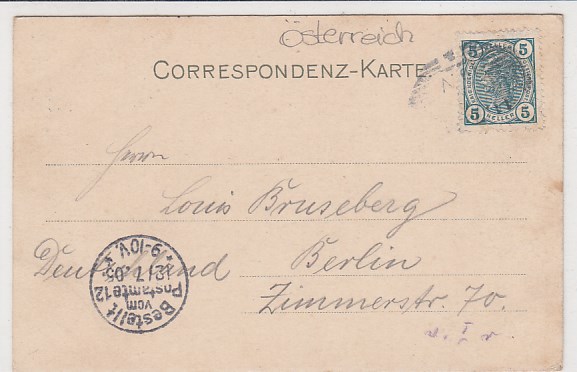 Österreich
CORRESPONDENZ-KARTE
5 5
5 HELLER 5
Herrn
Louis Bruseberg
Berlin
Deutschland
Zimmerstr. 70.
Bestellt
vom
Postamte 12
9-10 V.